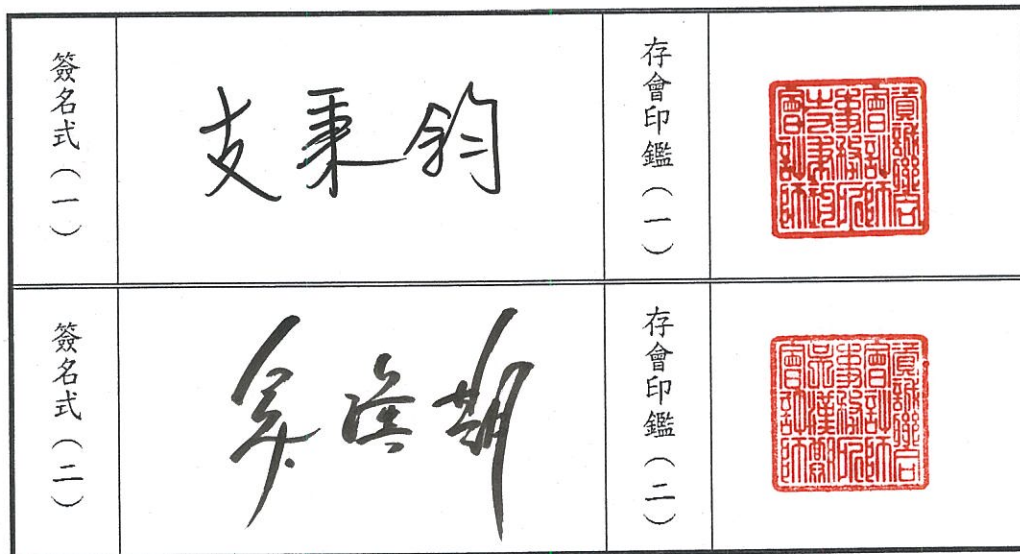 簽名式(一)
支秉鈞
存會印鑑(一)
資誠聯合
會計師
事務所
支秉鈞
會計師
簽名式(二)
吳漢期
存會印鑑(二)
資誠聯合
會計師
事務所
吳漢期
會計師